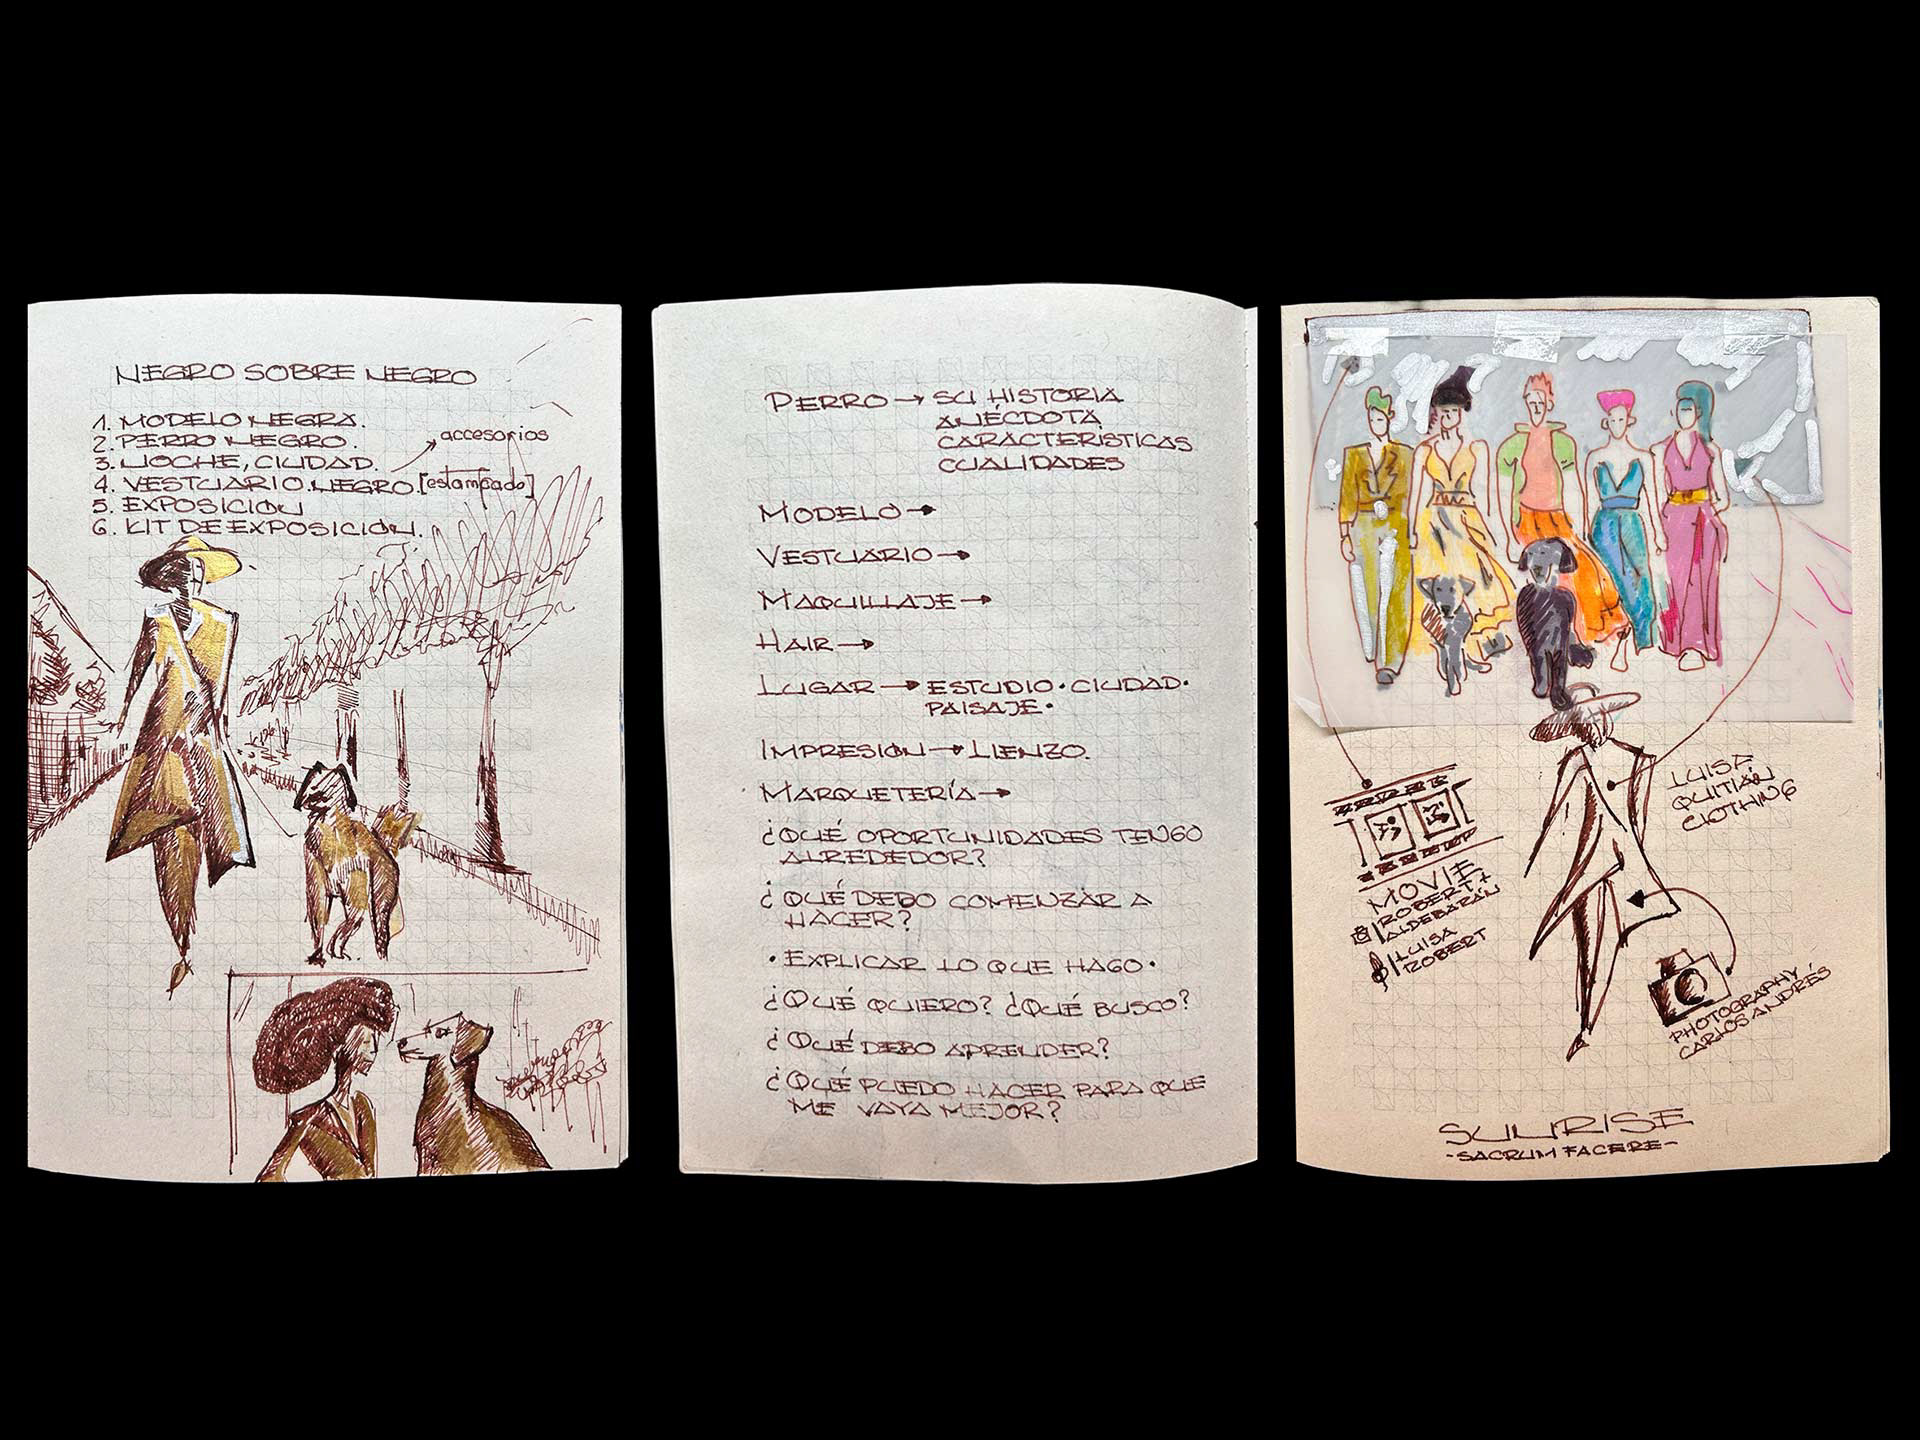 NEGRO SOBRE NEGRO
1. MODELO NEGRA.
2. PERRO NEGRO.
accesorios
3. NOCHE, CIUDAD.
4. VESTUARIO NEGRO. [estampado]
5. EXPOSICION
6. KIT DE EXPOSICION.
PERRO → SU HISTORIA
ANÉCDOTA
CARACTERISTICAS
CUALIDADES
MODELO →
VESTUARIO →
MAQUILLAJE →
HAIR →
LUGAR → ESTUDIO · CIUDAD ·
PAISAJE ·
IMPRESION → LIENZO.
MARQUETERÍA →
¿QUÉ OPORTUNIDADES TENGO
ALREDEDOR?
¿QUÉ DEBO COMENZAR A
HACER?
· EXPLICAR LO QUE HAGO ·
¿QUÉ QUIERO? ¿QUÉ BUSCO?
¿QUÉ DEBO APRENDER?
¿QUÉ PUEDO HACER PARA QUE
ME VAYA MEJOR?
LUISA
QUITIÁN
CLOTHING
MOVIE
ROBERT +
ALDEBARÁN
LUISA
ROBERT
PHOTOGRAPHY
CARLOS ANDRÉS
SUNRISE
- SACRUM FACERE -